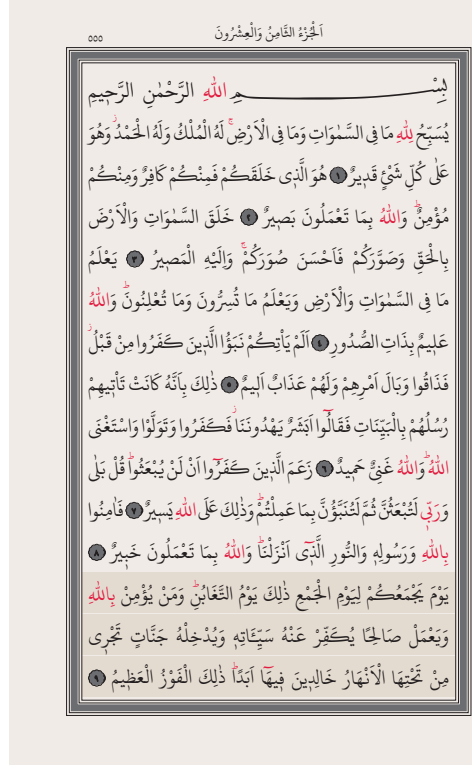 اَلْجُزْءُ الثَّامِنُ وَالْعِشْرُونَ
٥٥٥
بِسْمِ اللهِ الرَّحْمٰنِ الرَّحِيمِ
يُسَبِّحُ لِلّٰهِ مَا فِى السَّمٰوَاتِ وَمَا فِى الْاَرْضِۚ لَهُ الْمُلْكُ وَلَهُ الْحَمْدُۘ وَهُوَ
عَلٰى كُلِّ شَيْءٍ قَدِيرٌ ﴿١﴾ هُوَ الَّذِى خَلَقَكُمْ فَمِنْكُمْ كَافِرٌ وَمِنْكُمْ
مُؤْمِنٌۜ وَاللهُ بِمَا تَعْمَلُونَ بَصِيرٌ ﴿٢﴾ خَلَقَ السَّمٰوَاتِ وَالْاَرْضَ
بِالْحَقِّ وَصَوَّرَكُمْ فَاَحْسَنَ صُوَرَكُمْۚ وَاِلَيْهِ الْمَصِيرُ ﴿٣﴾ يَعْلَمُ
مَا فِى السَّمٰوَاتِ وَالْاَرْضِ وَيَعْلَمُ مَا تُسِرُّونَ وَمَا تُعْلِنُونَۜ وَاللهُ
عَلِيمٌ بِذَاتِ الصُّدُورِ ﴿٤﴾ اَلَمْ يَاْتِكُمْ نَبَؤُا الَّذِينَ كَفَرُوا مِنْ قَبْلُۘ
فَذَاقُوا وَبَالَ اَمْرِهِمْ وَلَهُمْ عَذَابٌ اَلِيمٌ ﴿٥﴾ ذٰلِكَ بِاَنَّهُ كَانَتْ تَاْتِيهِمْ
رُسُلُهُمْ بِالْبَيِّنَاتِ فَقَالُٓوا اَبَشَرٌ يَهْدُونَنَاۘ فَكَفَرُوا وَتَوَلَّوْا وَاسْتَغْنَى
اللهُۜ وَاللهُ غَنِىٌّ حَمِيدٌ ﴿٦﴾ زَعَمَ الَّذِينَ كَفَرُٓوا اَنْ لَنْ يُبْعَثُواۜ قُلْ بَلٰى
وَرَبِّى لَتُبْعَثُنَّ ثُمَّ لَتُنَبَّؤُنَّ بِمَا عَمِلْتُمْۜ وَذٰلِكَ عَلَى اللهِ يَسِيرٌ ﴿٧﴾ فَاٰمِنُوا
بِاللهِ وَرَسُولِهِ وَالنُّورِ الَّذِٓى اَنْزَلْنَاۜ وَاللهُ بِمَا تَعْمَلُونَ خَبِيرٌ ﴿٨﴾
يَوْمَ يَجْمَعُكُمْ لِيَوْمِ الْجَمْعِ ذٰلِكَ يَوْمُ التَّغَابُنِۜ وَمَنْ يُؤْمِنْ بِاللهِ
وَيَعْمَلْ صَالِحًا يُكَفِّرْ عَنْهُ سَيِّـَٔاتِهِ وَيُدْخِلْهُ جَنَّاتٍ تَجْرِى
مِنْ تَحْتِهَا الْاَنْهَارُ خَالِدِينَ فِيهَٓا اَبَدًاۜ ذٰلِكَ الْفَوْزُ الْعَظِيمُ ﴿٩﴾